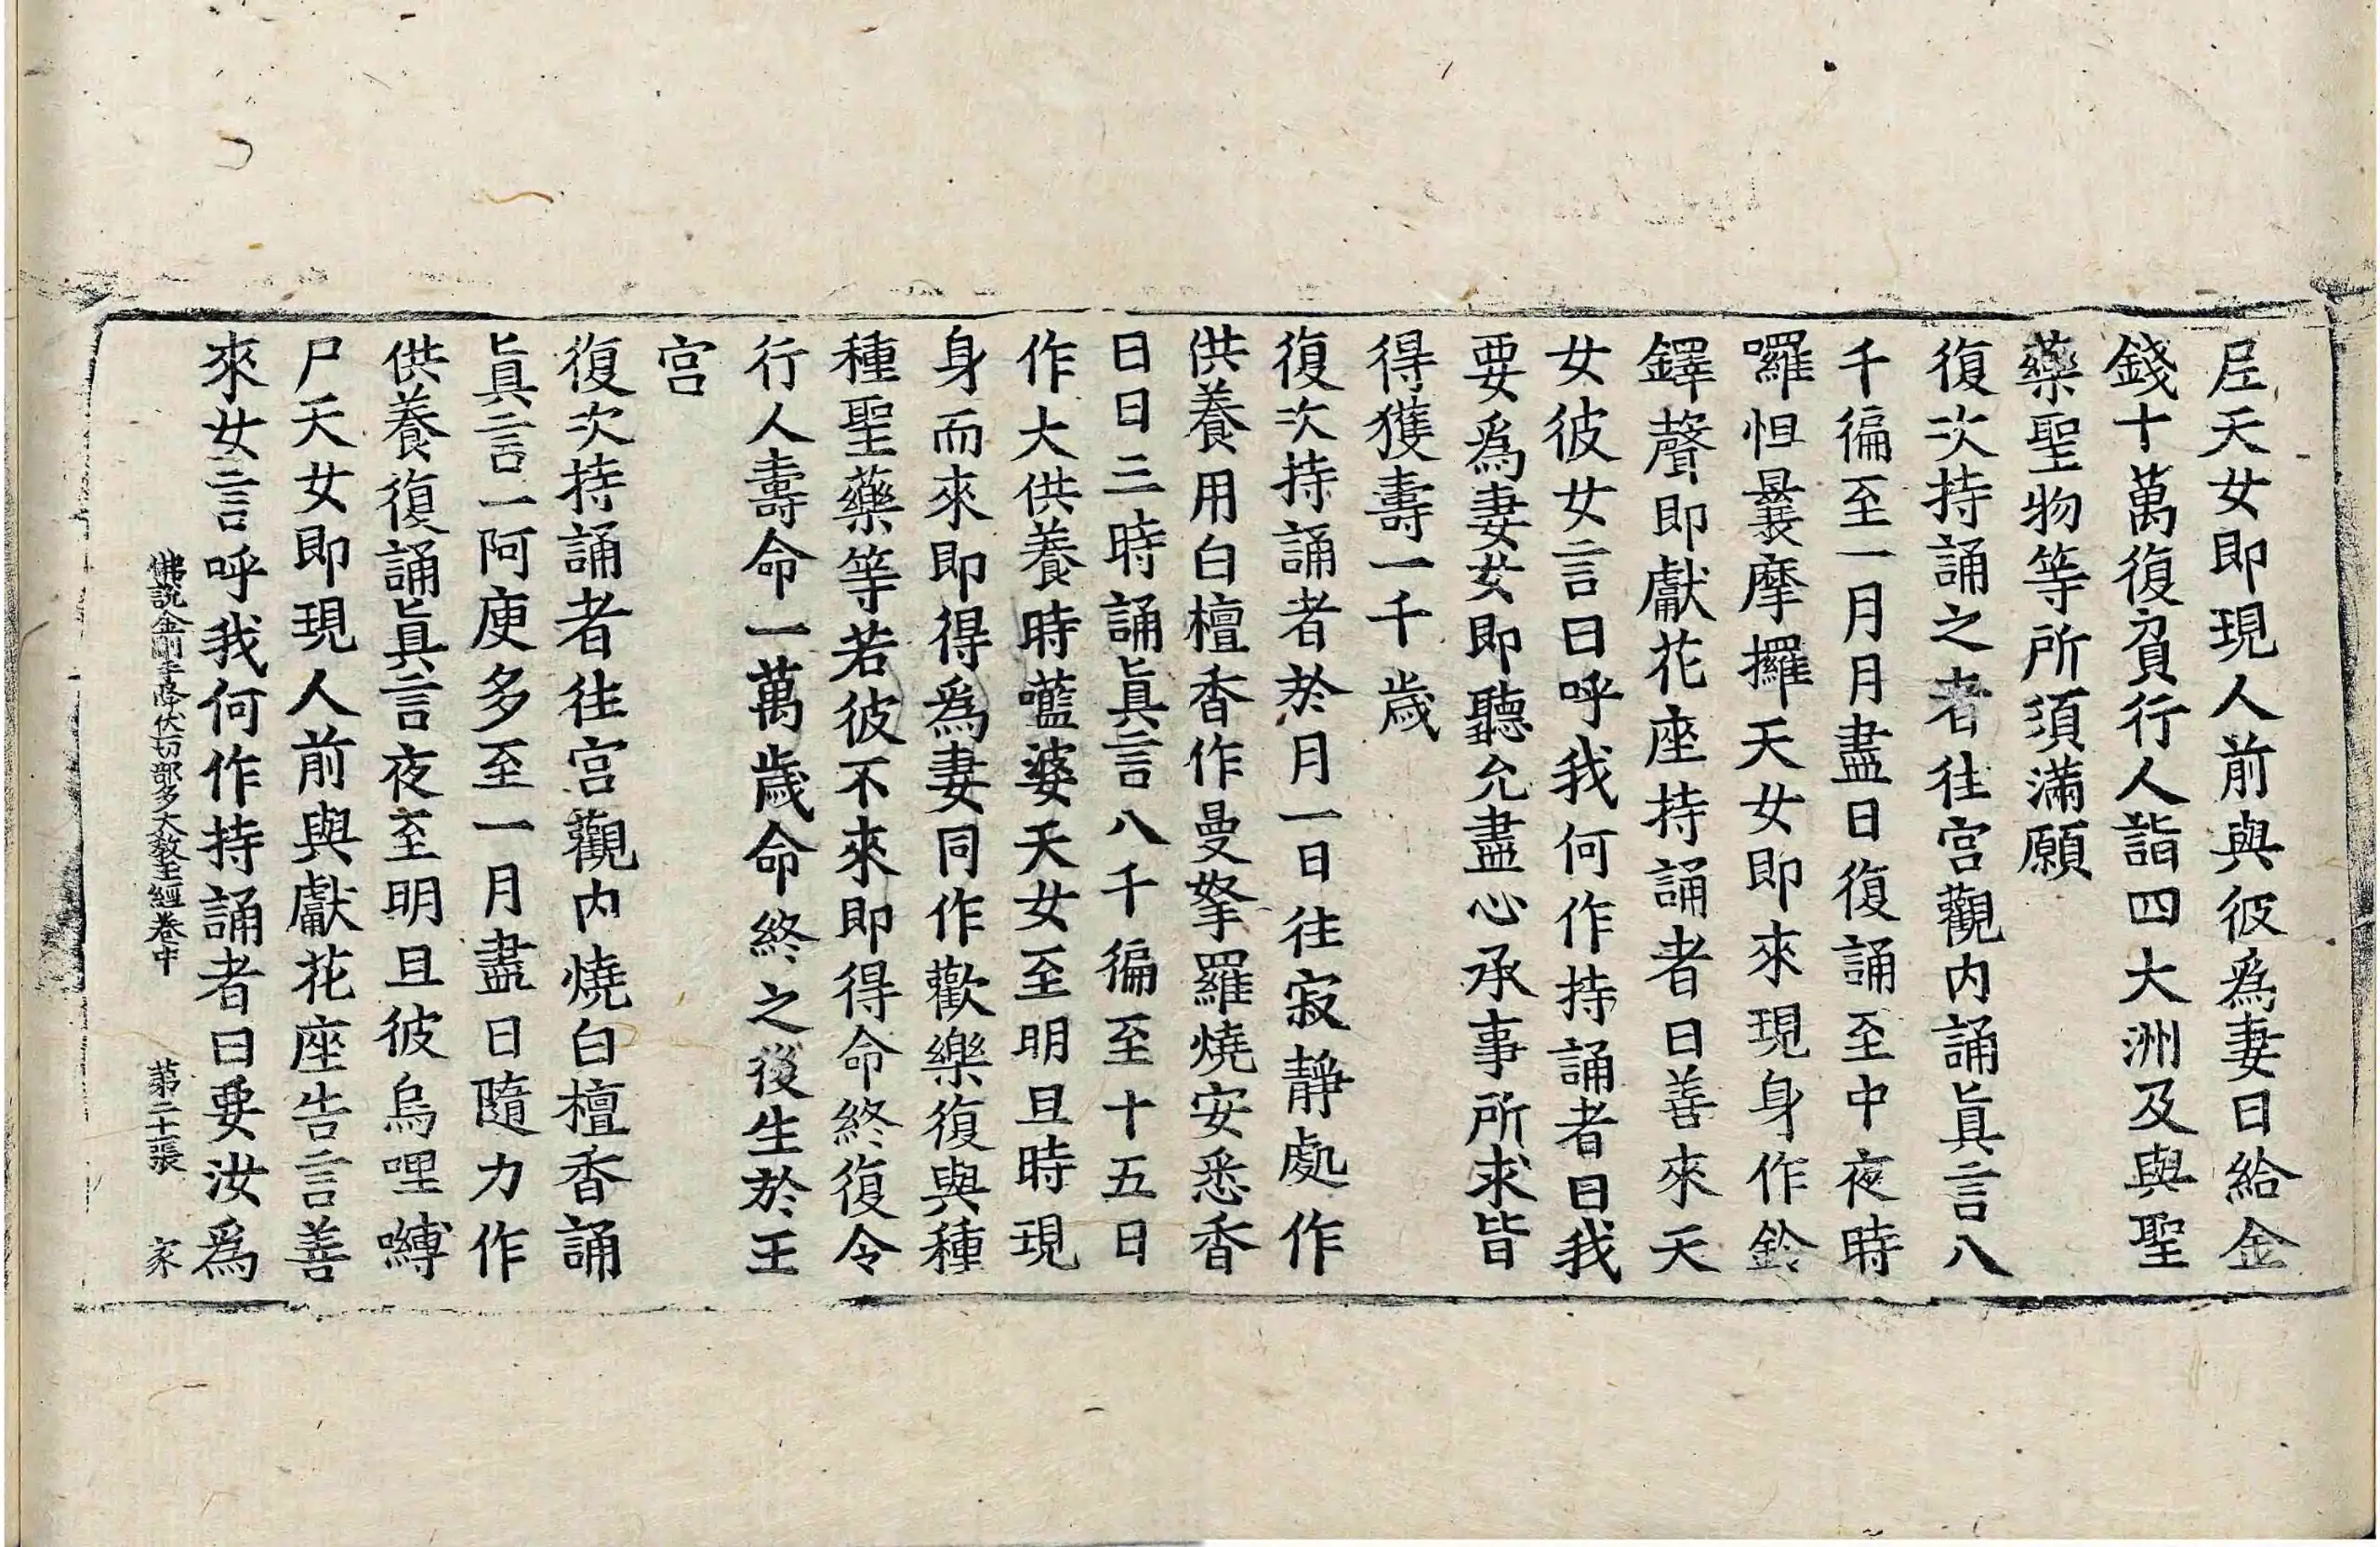 𡰱天女即現人前與彼爲妻日給金
錢十萬復負行人詣四大洲及與聖
藥聖物等所須滿願
復次持誦之者往宮觀内誦眞言八
千徧至一月月盡日復誦至中夜時
囉怛曩摩攞天女即來現身作鈴
鐸聲即獻花座持誦者曰善來天
女彼女言曰呼我何作持誦者曰我
要爲妻女即聽允盡心承事所求皆
得獲壽一千歲
復次持誦者於月一日往寂靜處作
供養用白檀香作曼拏羅燒安悉香
日日三時誦眞言八千徧至十五日
作大供養時嚂婆天女至明旦時現
身而來即得爲妻同作歡樂復與種
種聖藥等若彼不來即得命終復令
行人壽命一萬歲命終之後生於王
宮
復次持誦者往宮觀内燒白檀香誦
眞言一阿庾多至一月盡日隨力作
供養復誦眞言夜至明旦彼烏哩嚩
尸天女即現人前與獻花座告言善
來女言呼我何作持誦者曰要汝爲
佛說金剛手降伏一切部多大教王經卷中 第二十張 家